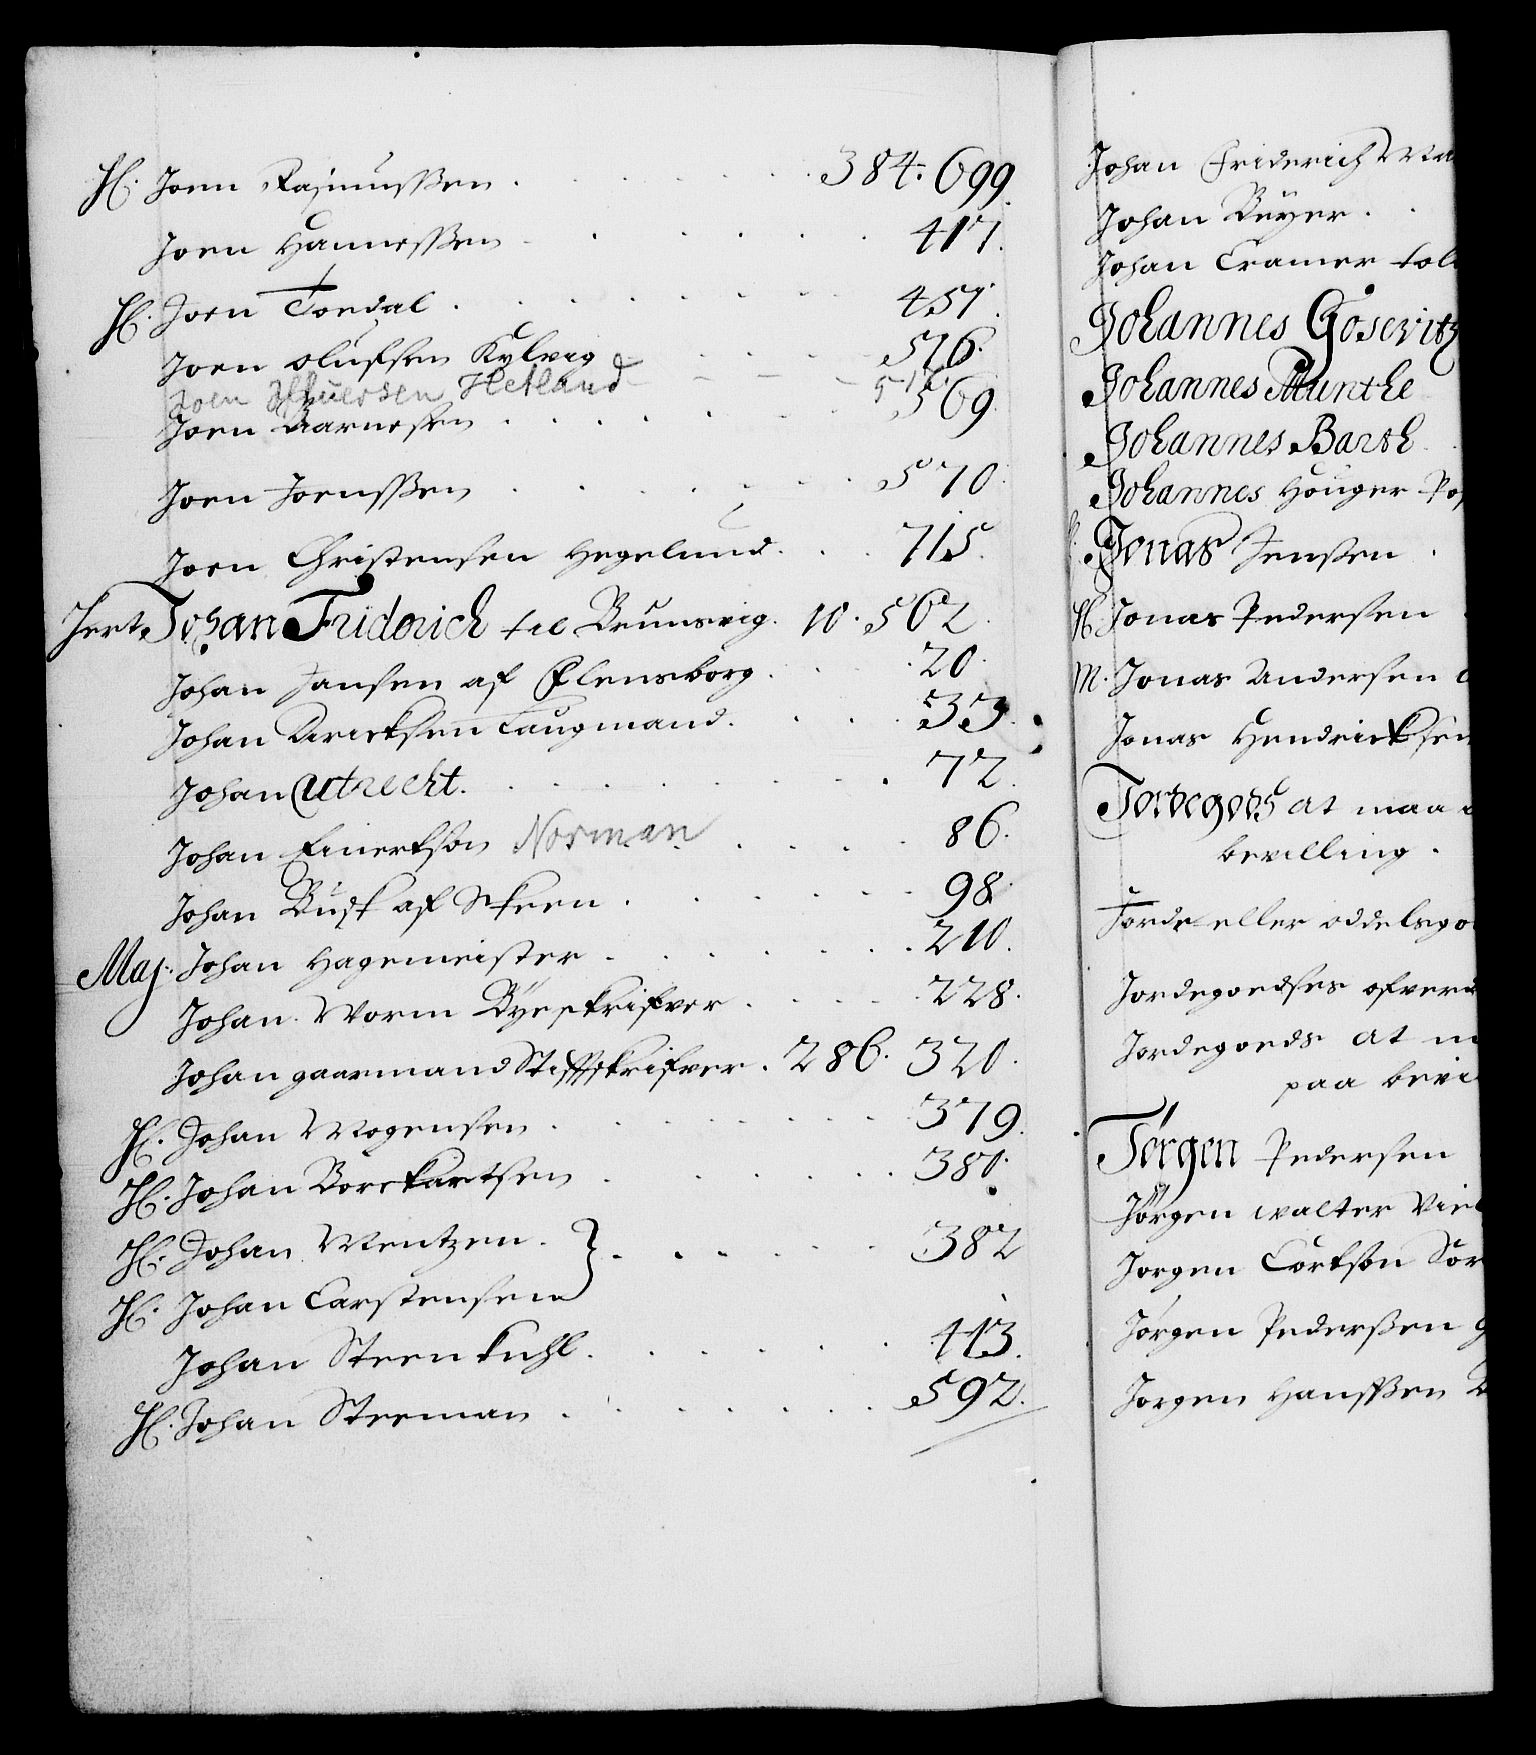 H. Joen Rasmussen . . . . . . . 384. 699
Joen Hannessen . . . . . . 417.
H. Joen Tordal . . . . . . . 457.
Joen olufsen Kylvig . . . . 516.
Joen Hetland - - - - 516
Joen Aarnesen . . . . . . 569.
Joen Joenssen . . . . . . . 570.
Joen Christensen Hegelund . . . 715.
Hert. Johan Friderich til Brunsvig. 10. 562.
Johan Jansen af Flensborg . . . . 20.
Johan Dircksen Laugmand . . . . 33.
Johan Utrecht . . . . . . . 72.
Johan Norman . . . . . 86.
Johan Busk af Skeen . . . . . . 98.
Maj. Johan Hagemeister . . . . . . 210.
Johan Worm Byeskrifver . . . . . 228.
Johan gaarmand Stiffskrifver . 286. 320.
H. Johan Mogensen . . . . . . . 379.
H. Johan Borckartsen . . . . . . 380.
H. Johan Wentzen . } . . . . . . 382
H. Johan Carstensen
Johan Steenkuhl . . . . . . 443.
H. Johan Steeman . . . . . . . 592.
Johan Friderich Ma
Johan Beyer . .
Johan Cramer tol
Johannes Gosevitz
Johannes Munthe
Johannes Barth
Johannes Houger Pos
Jonas Jenssen .
H. Jonas Pedersen
M. Jonas Andersen
Jonas Hendricksen
Jordegods at maa
bevilling .
Jorde eller oddelsgo
Jordegoedses ofver
Jordegoeds at m
paa bevi
Jørgen Pedersen
Jørgen walter
Jørgen Sør
Jørgen Pederssen
Jørgen Hanssen